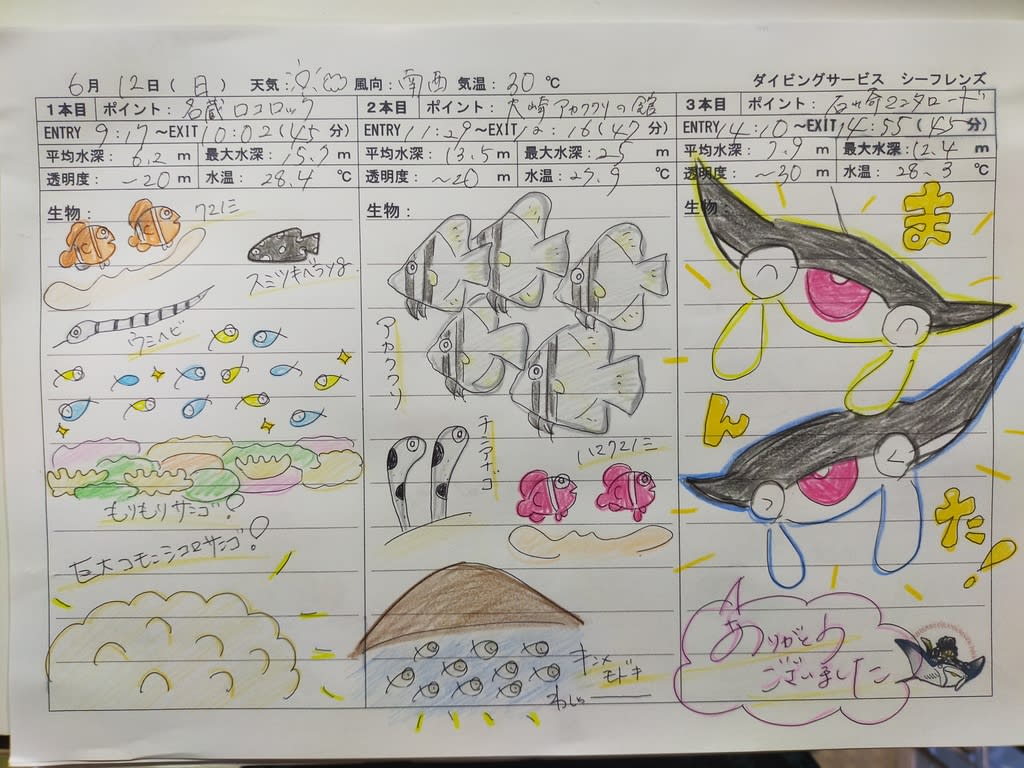 6月 12日(日) 天気: 風向:南西 気温:30℃ ダイビングサービス シーフレンズ
1本目 ポイント: 名蔵ロコロック
ENTRY 9:17~EXIT 10:02(45分)
平均水深: 6.2m 最大水深: 15.7m
透明度: ~20m 水温: 28.4℃
生物:
クマノミ
スミツキベラyg.
ウミヘビ
もりもりサンゴ!
巨大コモンシコロサンゴ!
2本目 ポイント: 大崎アカククリの館
ENTRY 11:29~EXIT 12:16(47分)
平均水深: 13.5m 最大水深: 25m
透明度: ~20m 水温: 27.9℃
生物:
アカククリ
チンアナゴ
ハマクマノミ
キンメ
モドキ
わしゃ
3本目 ポイント: 石崎マンタロード
ENTRY 14:10~EXIT 14:55(45分)
平均水深: 7.9m 最大水深: 12.4m
透明度: ~30m 水温: 28.3℃
生物:
ま
ん
た!
ありがとう
ございました